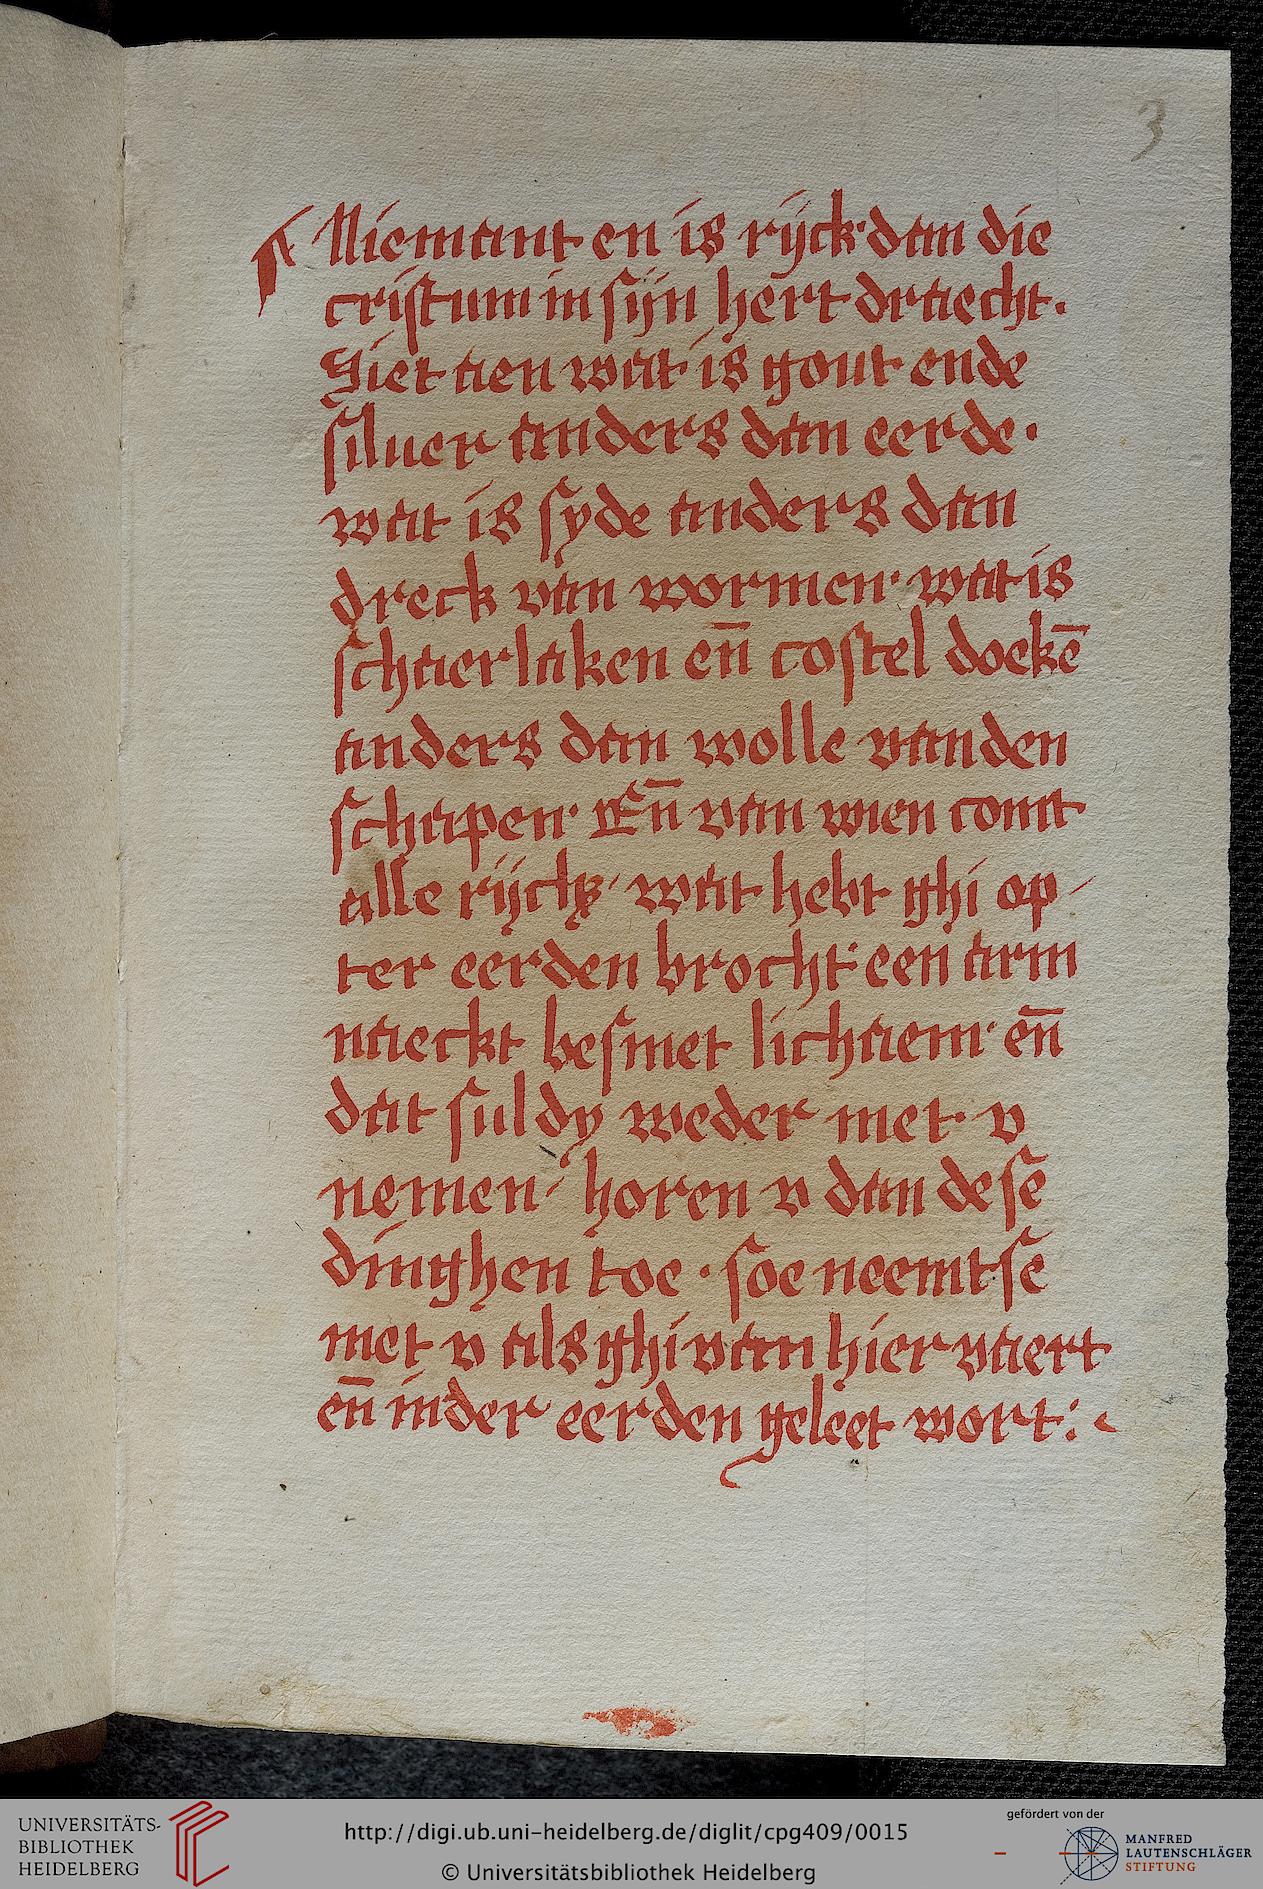 3
Niemant en is rijck· dan die
cristum in sijn hert draecht.
Siet aen wat is gout ende
siluer anders dan eerde·
wat is syde anders dan
dreck van wormen· wat is
schaerlaken en̄ costel doekē
anders dan wolle vanden
schapen· En̄ van wien comt
alle wat hebt ghi op
ter eerden brocht· een arm
naeckt besmet lichaem· en̄
dat suldy weder met v
nemen· horen v dan dese
dinghen toe· soe neemtse
met v als ghi van hier vaert
en̄ inder eerden geleet wort:
UNIVERSITÄTS-
BIBLIOTHEK
HEIDELBERG
http://digi.ub.uni-heidelberg.de/diglit/cpg409/0015
© Universitätsbibliothek Heidelberg
gefördert von der
MANFRED
LAUTENSCHLÄGER
STIFTUNG